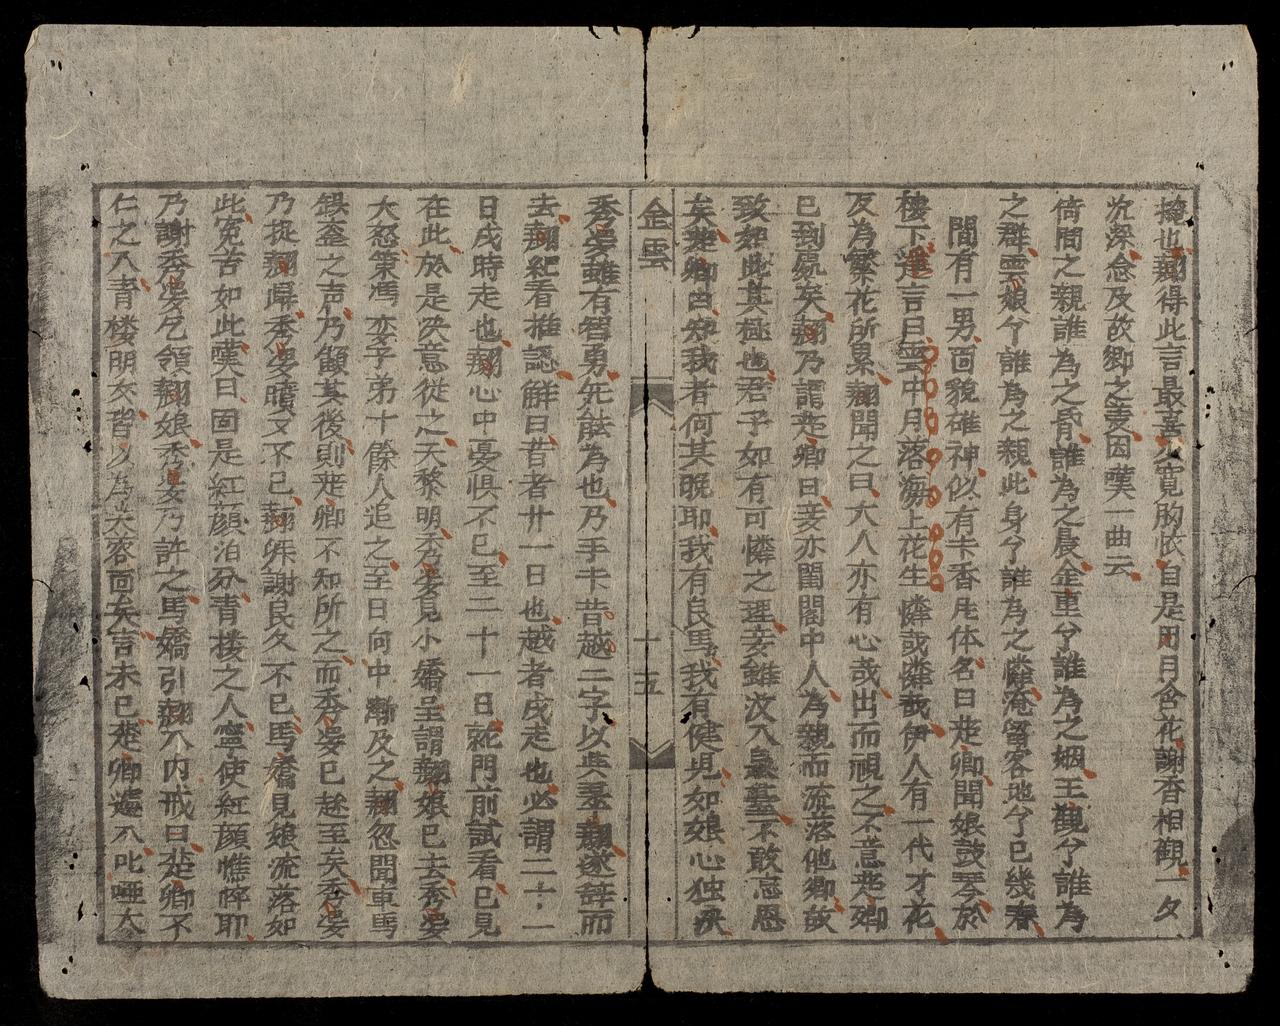 擒也翹得此言最喜宽胸懷自是用月含花謝香相観一夕
沉深念及故卿之妻因嘆一曲云
倚閭之親誰為之昏誰為之晨金重兮誰為之姻王觀兮誰為
之群雲娘兮誰為之親此身兮誰為之憐淹留客地兮已幾春
間有一男面貌碓神似有卞香尨体名曰楚卿聞娘鼓琴於
樓下逆言曰雲中月落海上花生憐或憐哉伊人有一代才花
反為繁花所累翹聞之曰大人亦有心哉出而視之不意楚卿
已到処矣翹乃謂楚卿曰妾亦閨閣中人為親而流落他卿故
致如此其極也君子如有可憐之理妾雖汶入泉臺不敢忘恩
矣楚卿曰知我者何其晚耶我有良馬我有健児如娘心独决
金雲
十五
秀妾雖有智勇先能為也乃手卞昔越二字以與妾翹遂辞而
去翹紅看推認觧曰昔者廿一日也越者戌走也必謂二十一
日戌時走也翹心中憂惧不已至二十一日就門前試看已見
在此於是决意從之天黎明秀妾見小嬌呈謂翹娘已去秀妾
大怒策馮娈子弟十餘人追之至日向中漸及之翹忽聞車馬
鑾金之声乃顧其後則楚卿不知所之而秀妾已趂至矣秀妾
乃捉翹㱕秀妾嘖文不已翹㱕謝良久不已馬嬌見娘流落如
此冤苦如此嘆曰固是紅顔泊分青楼之人寧使紅顔憔悴耶
乃謝秀妾乞領翹娘秀妾乃許之馬嬌引翹入内戒曰楚卿不
仁之入青楼明友皆以為芙蓉面矣言未已楚卿遽入叱唖大